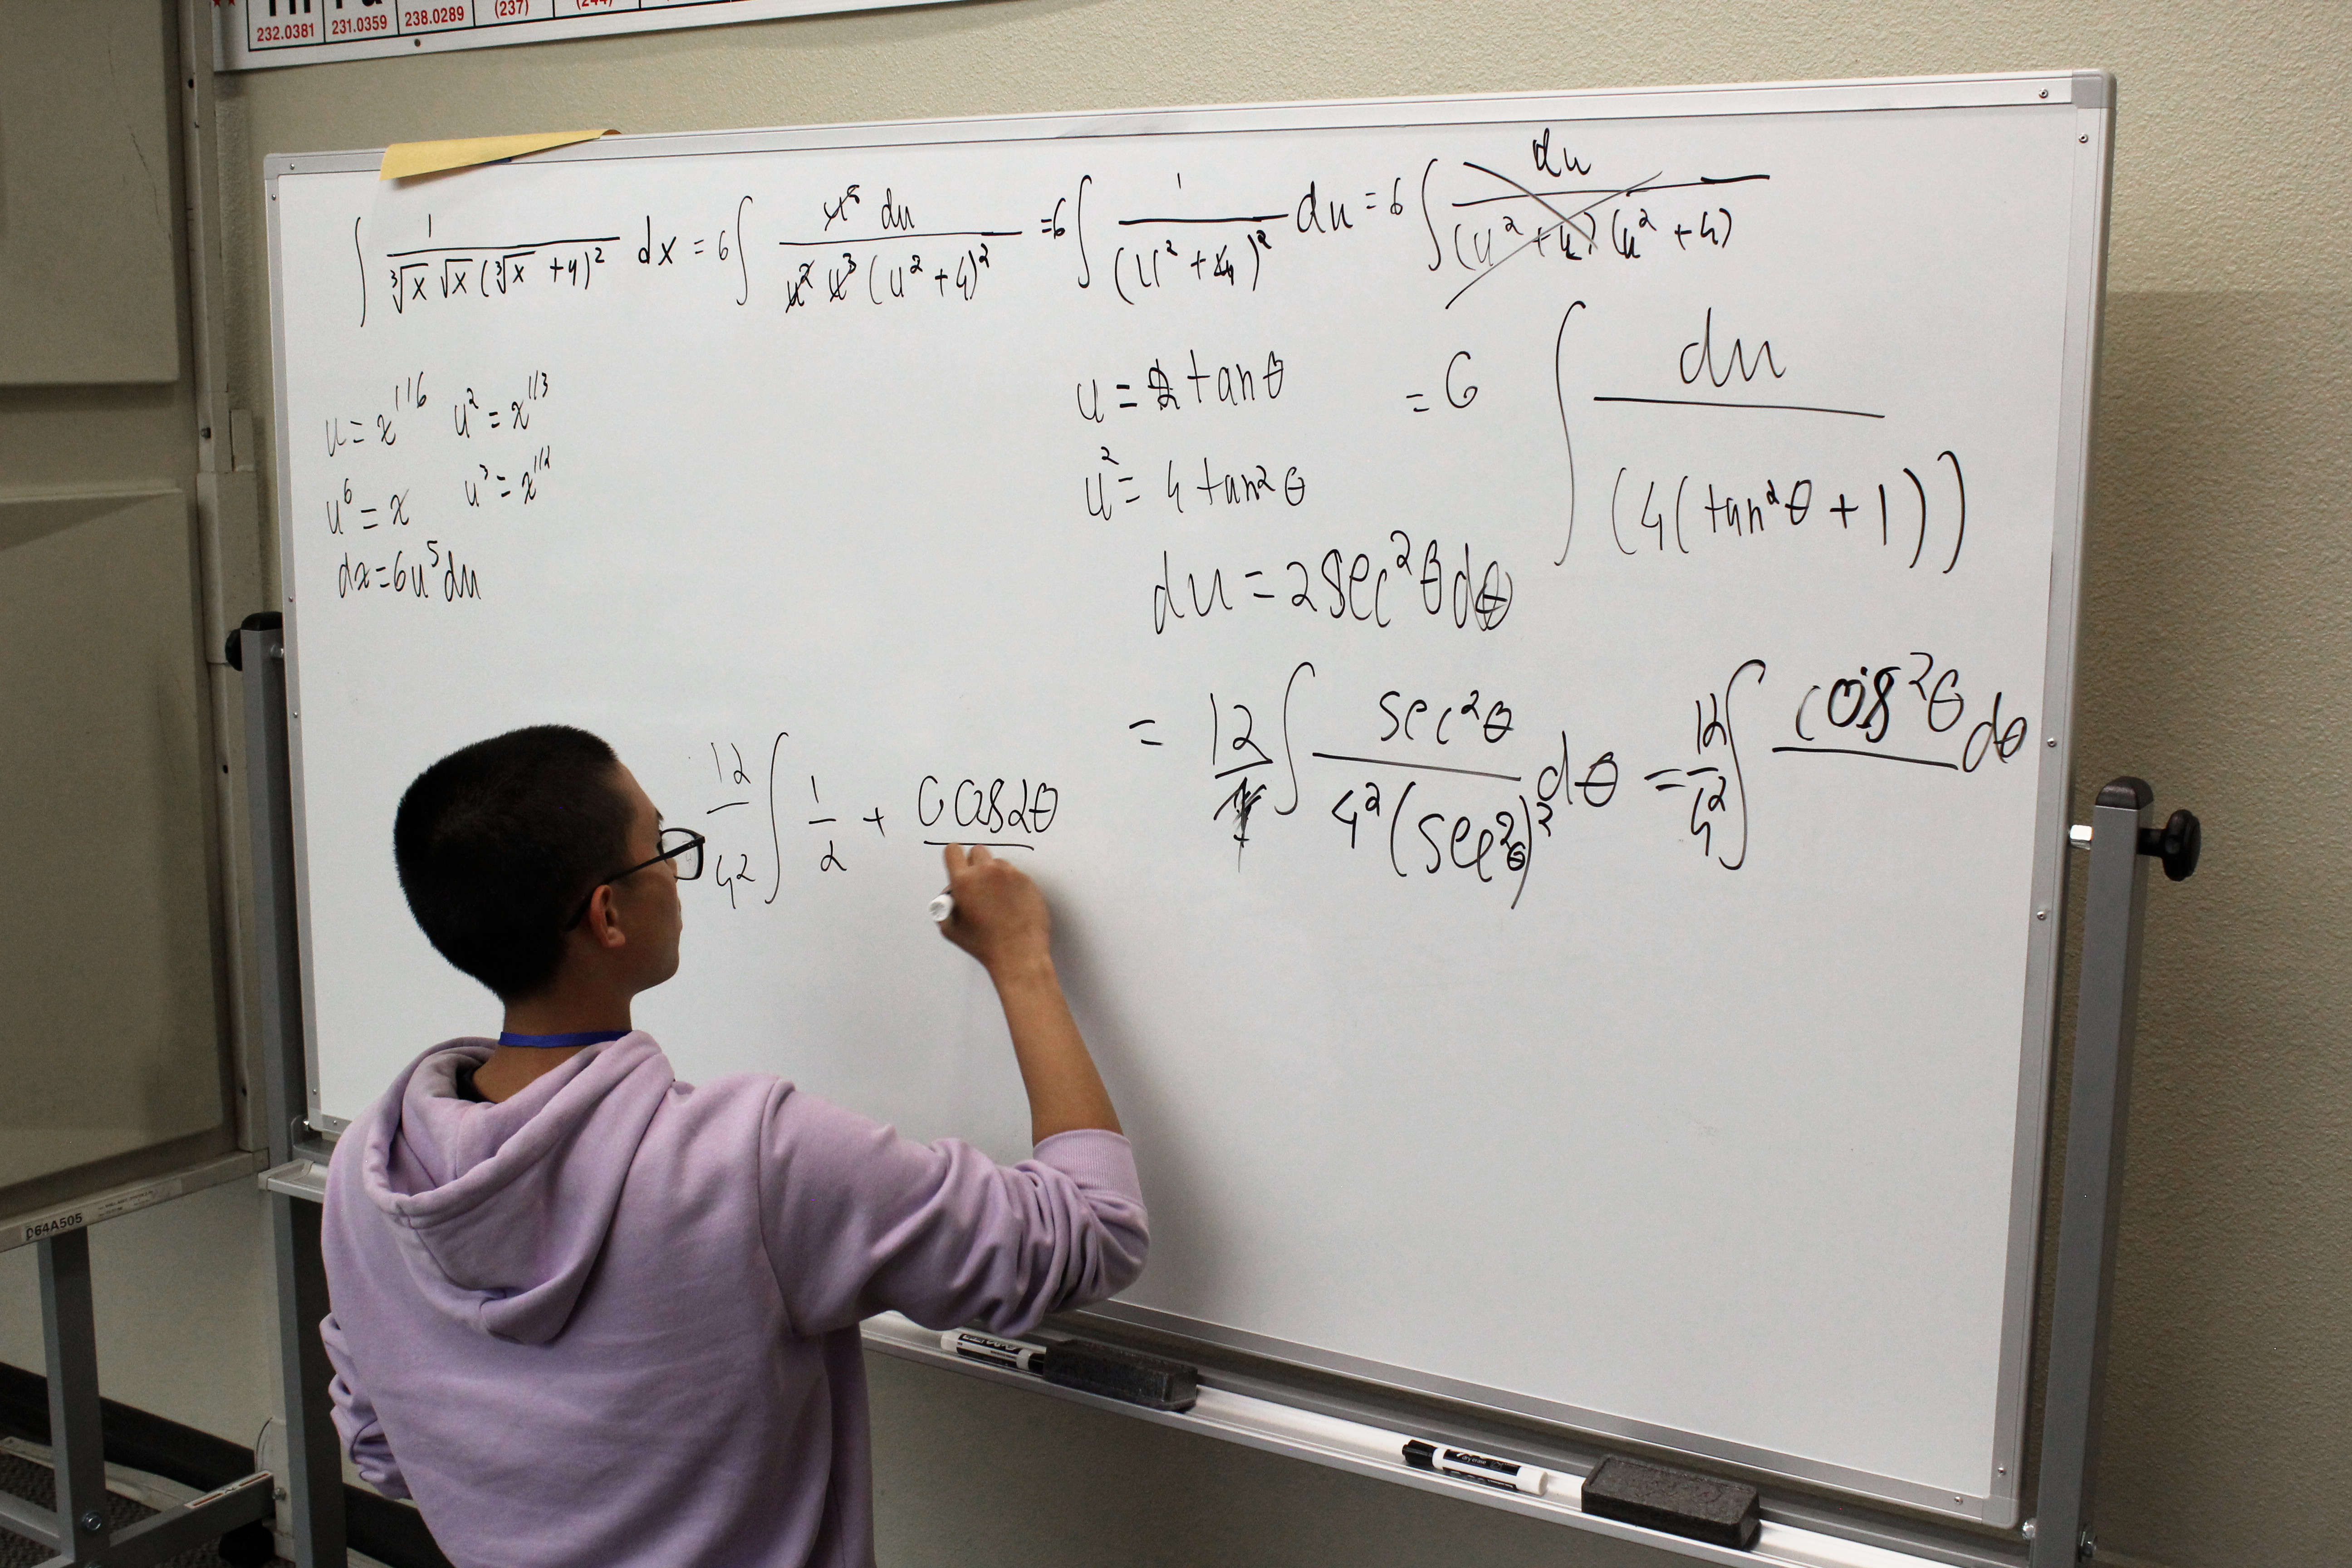 232.0381 231.0359 238.0289 (237) (244)
∫ 1/(∛x √x (∛x + 4)²) dx = 6 ∫ u⁵ du/(u² u³ (u² + 4)²) = 6 ∫ 1/(u² + 4)² du = 6 ∫ du/((u² + 4)(u² + 4))
u = x^1/6 u² = x^1/3
u⁶ = x u³ = x^1/2
dx = 6u⁵ du
u = 2 tan θ
u² = 4 tan² θ
du = 2 sec² θ dθ
= 6 ∫ du/(4(tan² θ + 1))
= 12/ ∫ sec² θ/(4² (sec² θ)²) dθ = 12/4² ∫ cos² θ/ dθ
12/4² ∫ 1/2 + cos 2θ/
D64A505